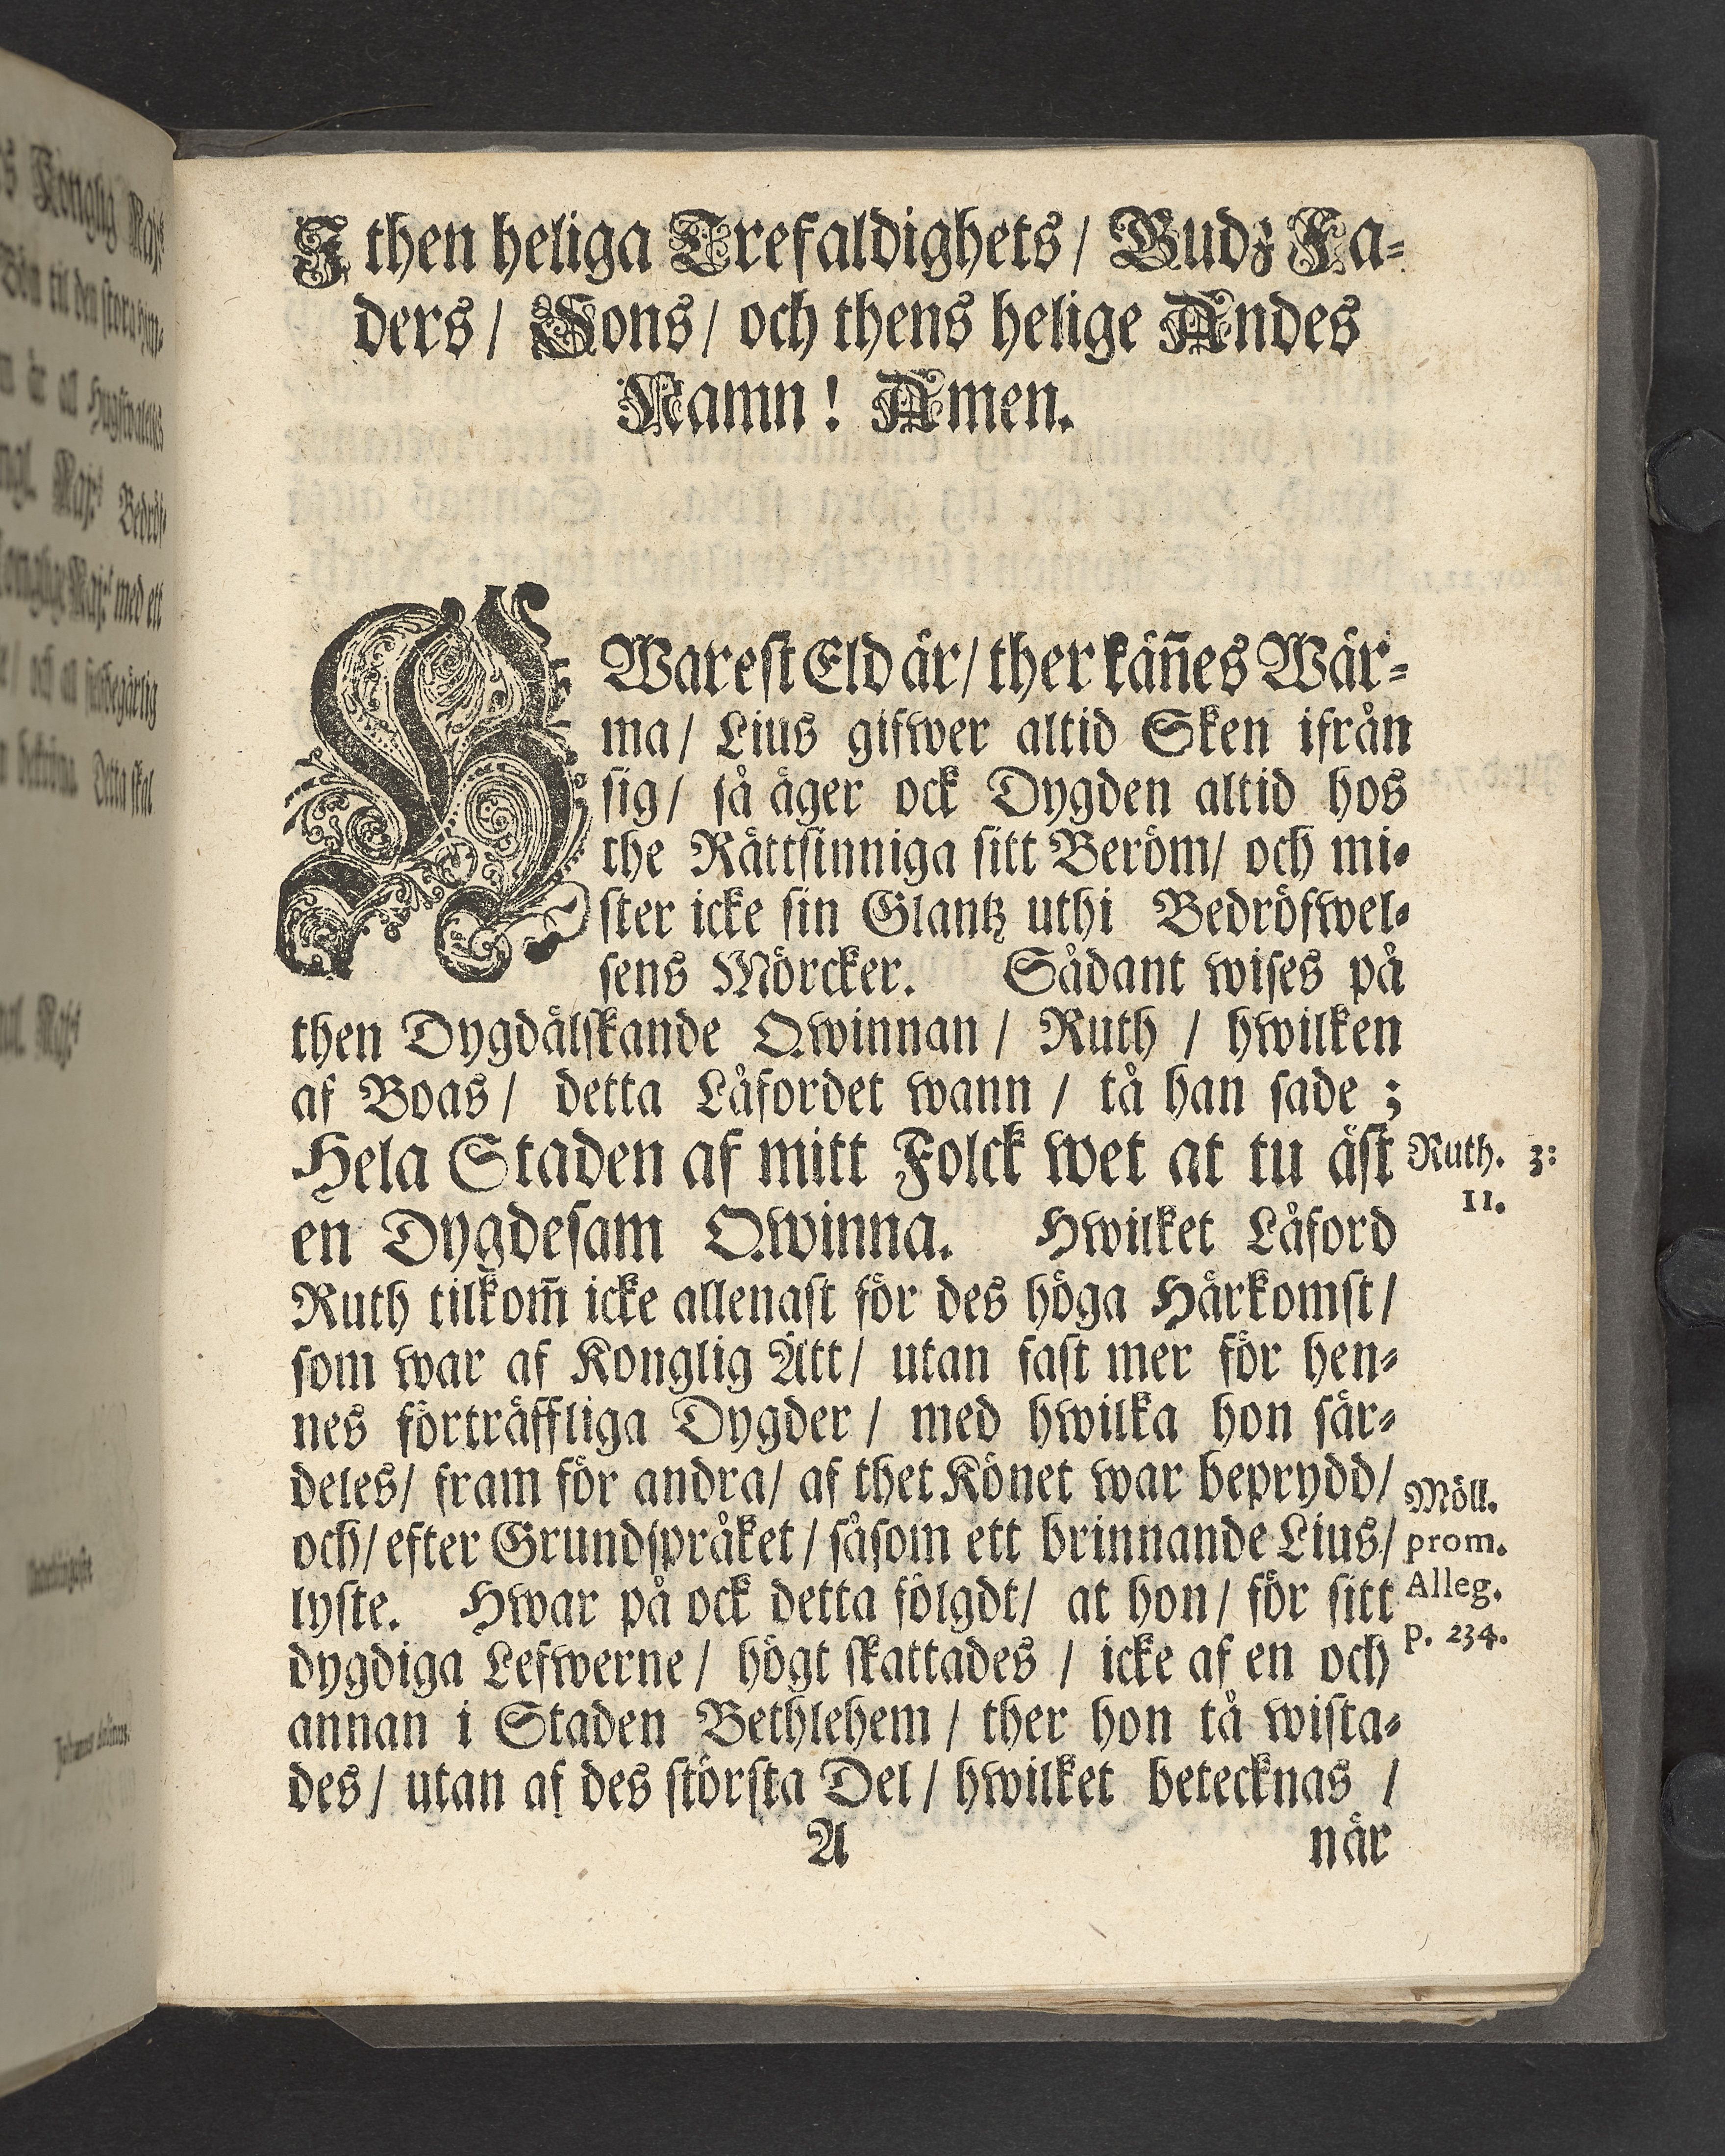 I then heliga Trefaldighets / Gudz Fa-
ders / Sons / och thens helige Andes
Namn! Amen.
HWarest Eld är / ther käñes Wär-
ma / Lius gifwer altid Sken ifrån
sig / så äger ock Dygden altid hos
the Rättsinniga sitt Beröm / och mi-
ster icke sin Glantz uthi Bedröfwel-
sens Mörcker. Sådant wises på
then Dygdälskande Qwinnan / Ruth / hwilken
af Boas / detta Låfordet wann / tå han sade ;
Hela Staden af mitt Folck wet at tu äst
en Dygdesam Qwinna. Hwilket Låford
Ruth tilkom̃ icke allenast för des höga Härkomst /
som war af Konglig Ätt / utan fast mer för hen-
nes förträffliga Dygder / med hwilka hon sär-
deles / fram för andra / af thet Könet war beprydd /
och / efter Grundspråket / såsom ett brinnande Lius /
lyste. Hwar på ock detta fölgdt / at hon / för sitt
dygdiga Lefwerne / högt skattades / icke af en och
annan i Staden Bethlehem / ther hon tå wista-
des / utan af des största Del / hwilket betecknas /
A när
Ruth. 3:
11.
Möll.
prom.
Alleg.
p. 234.